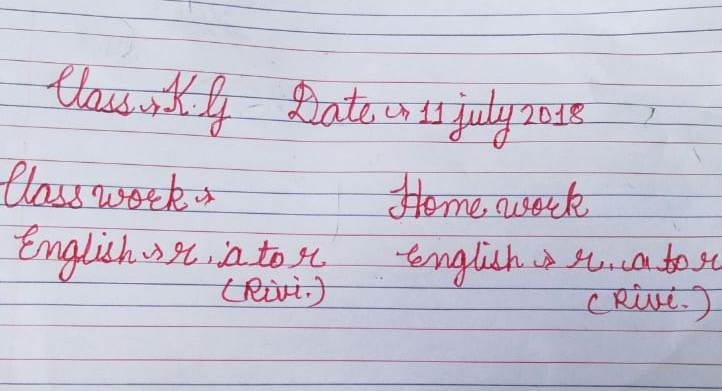 Class → K.G Date → 11 july 2018
Class work → Home work
English → r, a to r English → r, a to r
(Rivi.) (Rivi.)